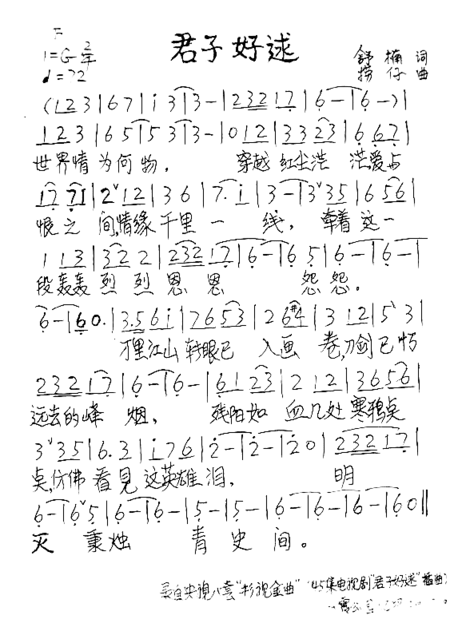 君子好逑
1=G 2/4
♩=72
舒楠 词
捞仔 曲
(123|67|i 33|3-|23217|6-|6-)|
123|65|533|3-|012|3323|667|
世界情为何物， 穿越红尘浩 茫爱与
1771|2ˇ12|36|7.i|3-|3ˇ35|656|
恨之间,情缘千里一 线， 牵着这一
113|322|23217|6-|6 5|6-|6-|
段轰轰烈烈恩恩 怨怨。
6-|60.|356i|7653|2 64|312|5ˇ3|
里江山转眼已 入画卷,刀剑已
23217|6-|6-|6123|212|3656|
远去的峰烟， 残阳如血几处寒鸦
3ˇ35|6.3|i76|2-|2-|20|23217|
仿佛看见这英雄泪， 明
6-|6ˇ5|6-|6-|5-|5-|6-|6-|6-|60‖
灭秉烛 青史间。
45集电视剧"君子好逑"插曲)